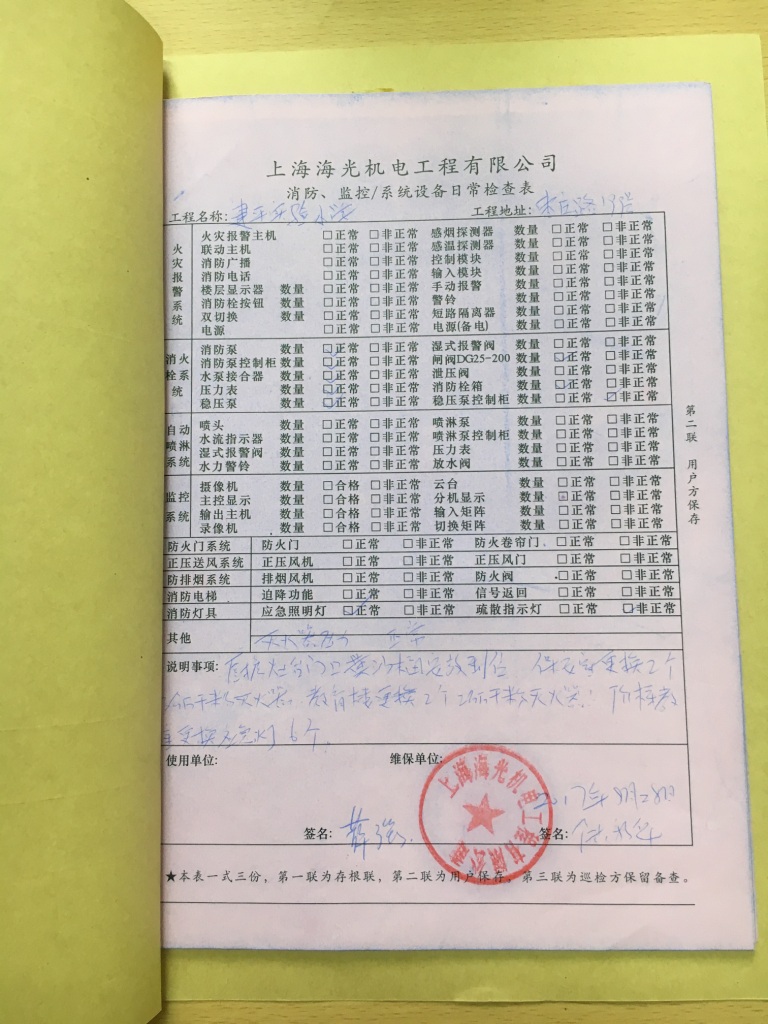 上海海光机电工程有限公司
消防、监控/系统设备日常检查表
工程名称: 工程地址:
火灾报警系统
火灾报警主机 □正常 □非正常 感烟探测器 数量 □正常 □非正常
联动主机 □正常 □非正常 感温探测器 数量 □正常 □非正常
消防广播 □正常 □非正常 控制模块 数量 □正常 □非正常
消防电话 □正常 □非正常 输入模块 数量 □正常 □非正常
楼层显示器 数量 □正常 □非正常 手动报警 数量 □正常 □非正常
消防栓按钮 数量 □正常 □非正常 警铃 数量 □正常 □非正常
双切换 数量 □正常 □非正常 短路隔离器 数量 □正常 □非正常
电源 □正常 □非正常 电源(备电) 数量 □正常 □非正常
消火栓系统
消防泵 数量 □正常 □非正常 湿式报警阀 数量 □正常 □非正常
消防泵控制柜 数量 □正常 □非正常 闸阀DG25-200 数量 □正常 □非正常
水泵接合器 数量 □正常 □非正常 泄压阀 数量 □正常 □非正常
压力表 数量 □正常 □非正常 消防栓箱 数量 □正常 □非正常
稳压泵 数量 □正常 □非正常 稳压泵控制柜 数量 □正常 □非正常
自动喷淋系统
喷头 数量 □正常 □非正常 喷淋泵 数量 □正常 □非正常
水流指示器 数量 □正常 □非正常 喷淋泵控制柜 数量 □正常 □非正常
湿式报警阀 数量 □正常 □非正常 压力表 数量 □正常 □非正常
水力警铃 数量 □正常 □非正常 放水阀 数量 □正常 □非正常
监控系统
摄像机 数量 □合格 □非正常 云台 数量 □正常 □非正常
主控显示 数量 □合格 □非正常 分机显示 数量 □正常 □非正常
输出主机 数量 □合格 □非正常 输入矩阵 数量 □正常 □非正常
录像机 数量 □合格 □非正常 切换矩阵 数量 □正常 □非正常
防火门系统 防火门 □正常 □非正常 防火卷帘门 □正常 □非正常
正压送风系统 正压风机 □正常 □非正常 正压风门 □正常 □非正常
防排烟系统 排烟风机 □正常 □非正常 防火阀 □正常 □非正常
消防电梯 迫降功能 □正常 □非正常 信号返回 □正常 □非正常
消防灯具 应急照明灯 □正常 □非正常 疏散指示灯 □正常 □非正常
其他 灭火器压力 正常
说明事项: 更换2个
干粉灭火器 更换2个 干粉灭火器
更换应急灯6个
使用单位: 维保单位:
上海海光机电工程有限公司
2017年8月28日
签名: 薛强 签名:
★本表一式三份，第一联为存根联，第二联为用户保存，第三联为巡检方保留备查。
第二联 用户方保存